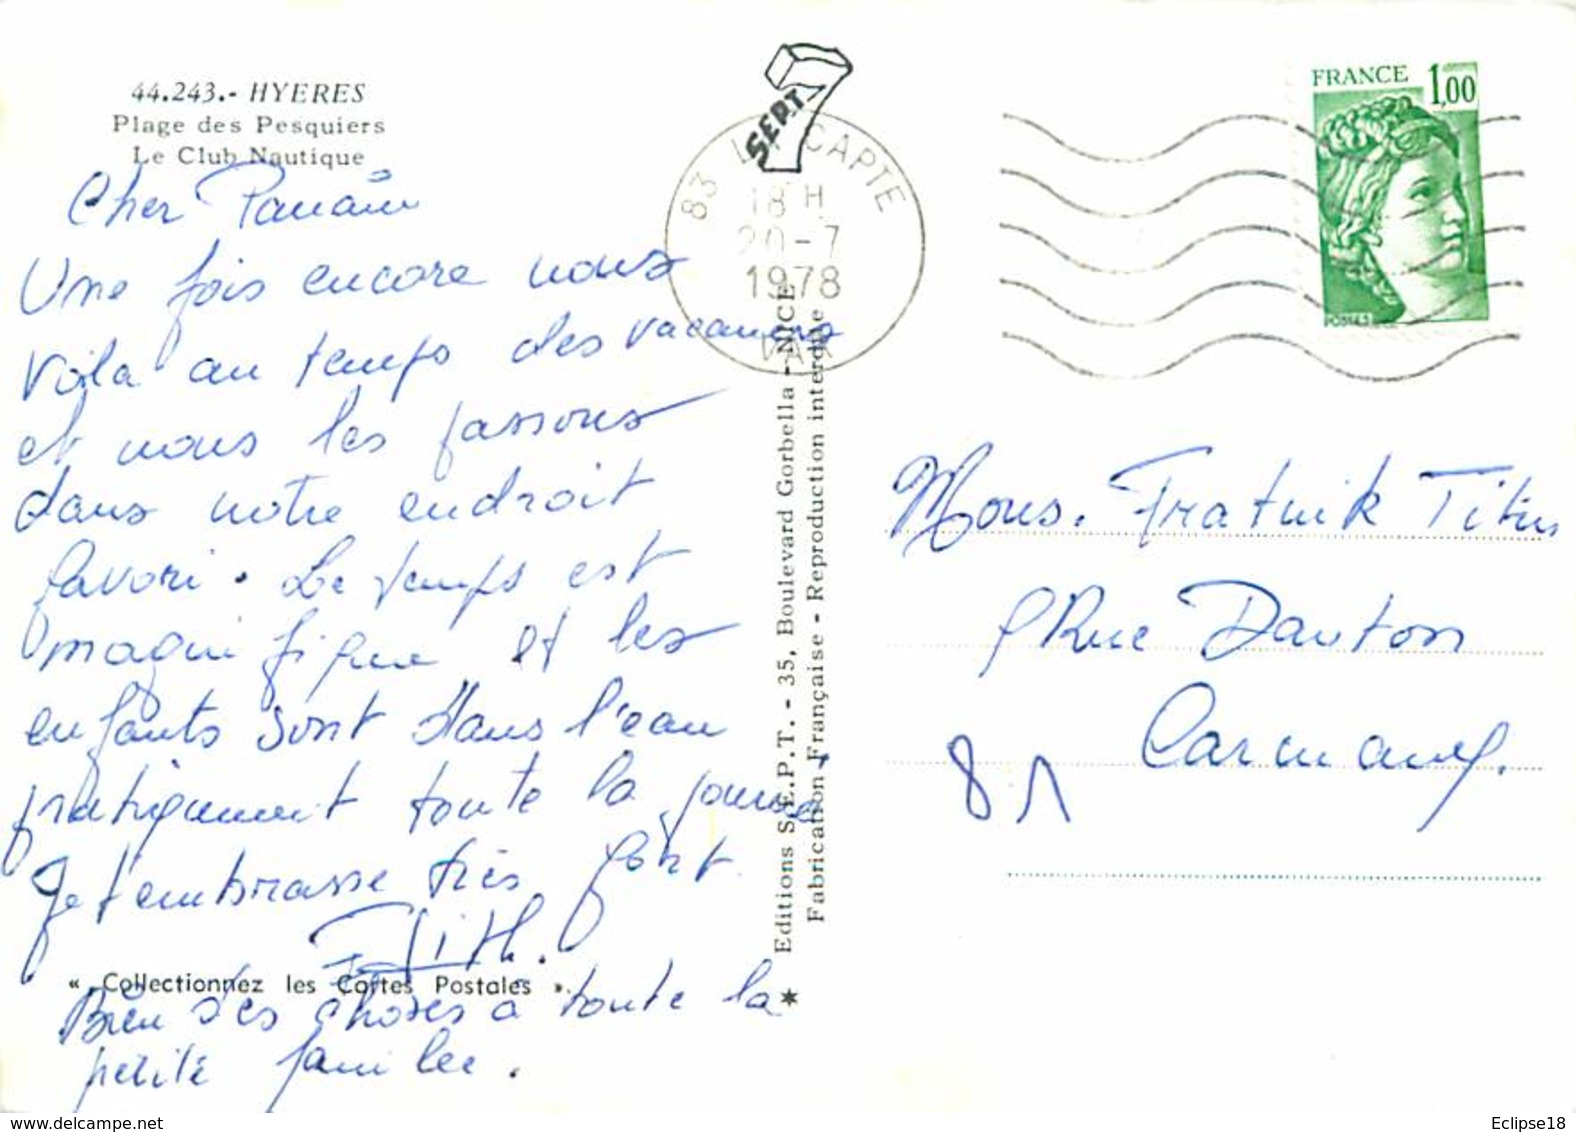 44.243.- HYERES
Plage des Pesquiers
Le Club Nautique
Cher Parrain
Une fois encore nous
voila au temps des vacances
et nous les passons
dans notre endroit
favori. Le temps est
magnifique et les
enfants sont dans l'eau
pratiquement toute la journée
Je t'embrasse très fort
Edith.
« Collectionnez les Cartes Postales ».
Bien des choses a toute la
petite famille.
SEPT 7
83 LA CAPTE
18 H
20-7
1978
VAR
Editions S.E.P.T. - 35, Boulevard Gorbella - NICE
Fabrication Française - Reproduction interdite
FRANCE 1,00
POSTES
Mons. Fratnik Titus
Rue Danton
81 Carmaux.
Eclipse18